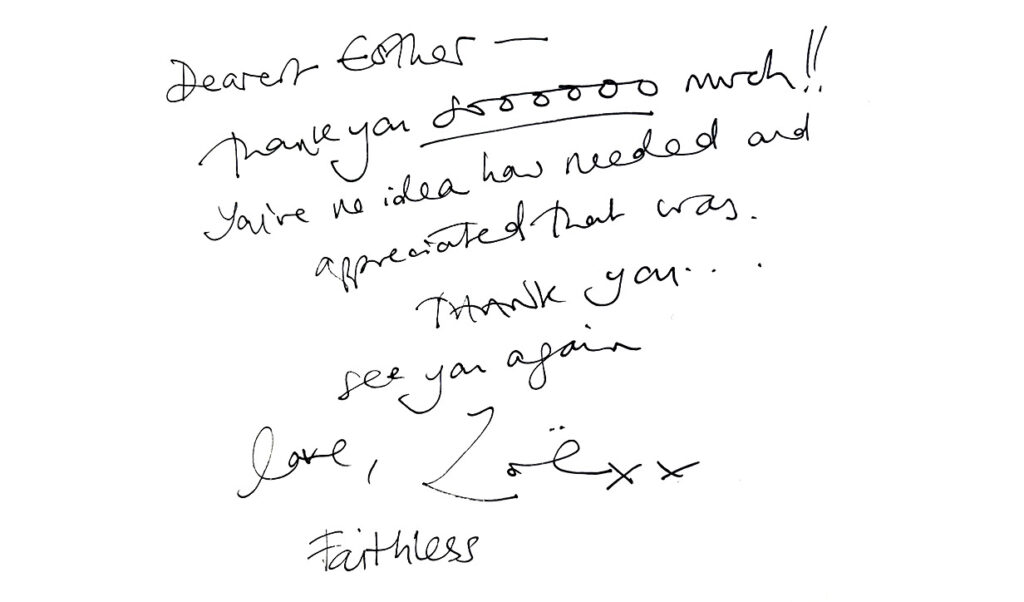 Dearest Esther —
Thank you soooooo much!!
You've no idea how needed and
appreciated that was.
THANK you...
see you again
love, Zoë xx
Faithless